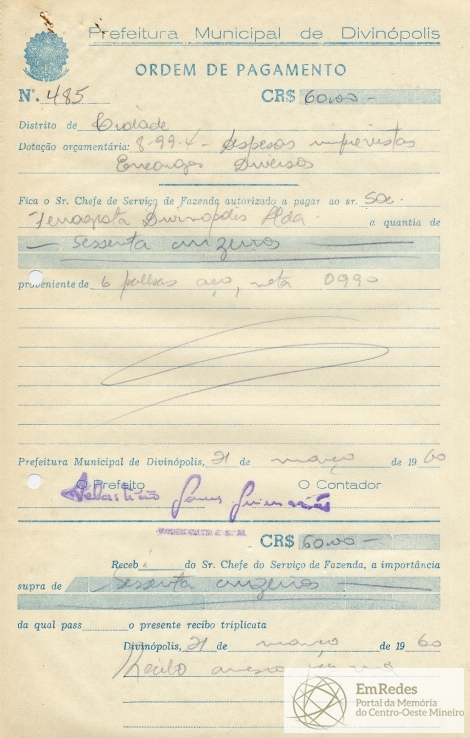 Prefeitura Municipal de Divinópolis
ORDEM DE PAGAMENTO
Nº. 485 CR$ 60,00 -
Distrito de Cidade
Dotação orçamentária: 8-99-4 - despesas imprevistas
Encargos Diversos
Fica o Sr. Chefe de Serviço de Fazenda autorizado a pagar ao sr. Soc.
Divinópolis Ltda. a quantia de
- sessenta cruzeiros -
proveniente de 6 folhas aço, nota 0990
Prefeitura Municipal de Divinópolis, 31 de março de 1960
O Prefeito O Contador
Sebastião Gomes Guimarães
CR$ 60,00 -
Receb do Sr. Chefe do Serviço de Fazenda, a importância
supra de sessenta cruzeiros -
da qual pass o presente recibo triplicata
Divinópolis, 31 de março de 1960
Recibo anexo
EmRedes
Portal da Memória
do Centro-Oeste Mineiro